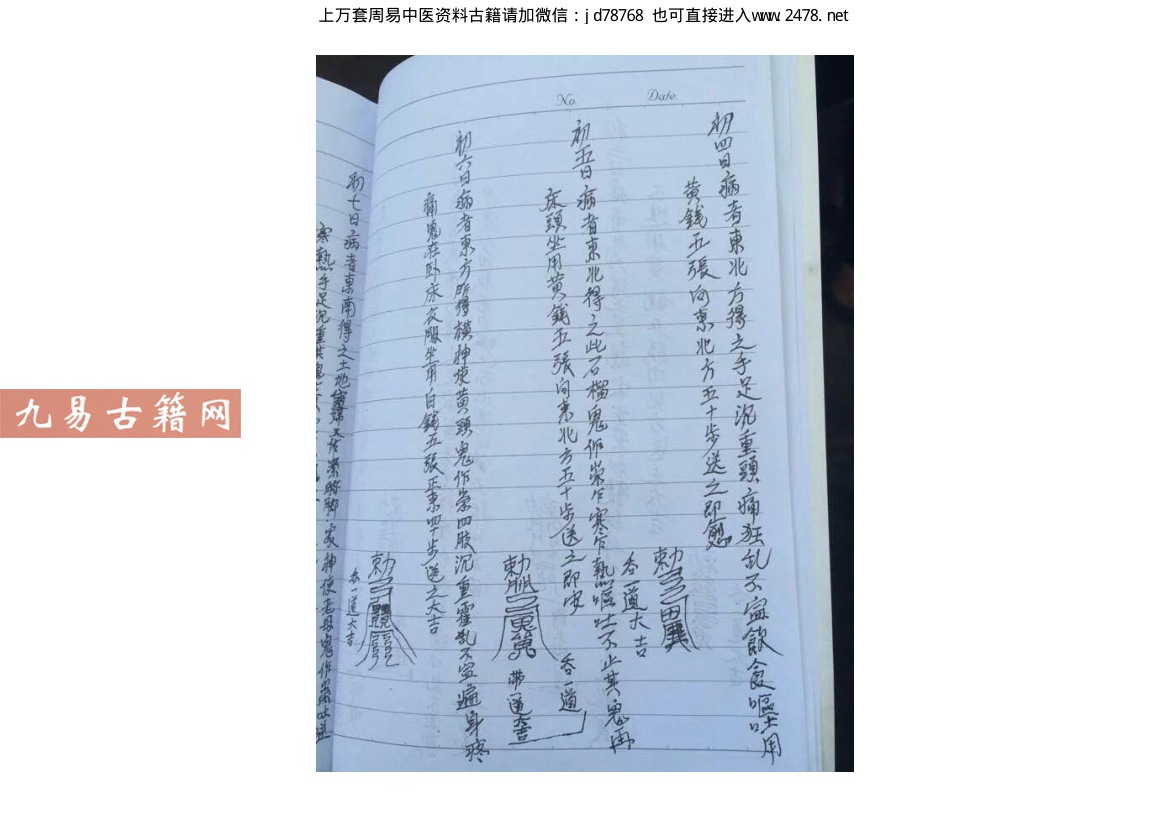 上万套周易中医资料古籍请加微信：jd78768 也可直接进入www.2478.net
九易古籍网
No.
Date.
初四日病者東北方得之手足沉重頭痛狂乱不寍飲食嘔吐用
黄錢五張向東北方五十步送之即愈
勅
吞一道大吉
初五日病者東北得之此石榴鬼作祟乍寒乍熱嘔吐不止其鬼再
床頭坐用黄錢五張向東北方五十步送之即安
吞一道
勅
带一道大吉
初六日病者東方所得横神使黄頭鬼作祟四肢沉重霍乱不寍遍身疼
痛鬼在卧床衣服坐用白錢五張正東四十步送之大吉
勅
吞一道大吉
初七日病者東南得之土地家神使老母鬼作祟吐逆
寒熱手足沉重其鬼